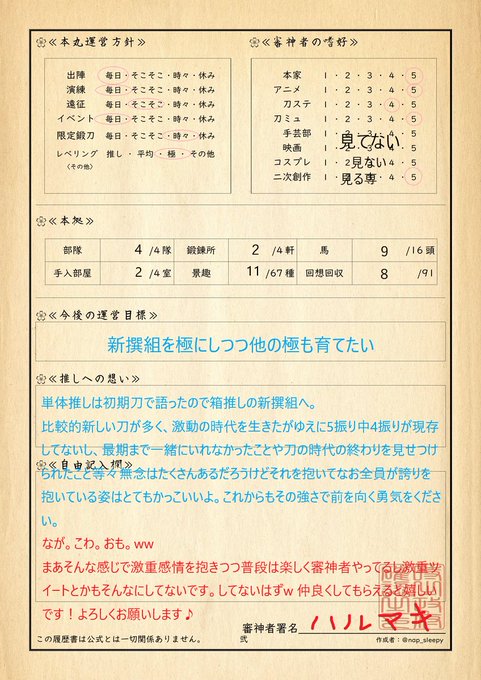 ≪本丸運営方針≫
出陣 毎日・そこそこ・時々・休み
演練 毎日・そこそこ・時々・休み
遠征 毎日・そこそこ・時々・休み
イベント 毎日・そこそこ・時々・休み
限定鍛刀 毎日・そこそこ・時々・休み
レベリング 推し・平均・極・その他
(その他)
≪審神者の嗜好≫
本家 1・2・3・4・5
アニメ 1・2・3・4・5
刀ステ 1・2・3・4・5
刀ミュ 1・2・3・4・5
手芸部 1・2・3・4・5
映画 見てない
コスプレ 見ない
二次創作 見る専 4・5
≪本拠≫
部隊 4/4隊 鍛錬所 2/4軒 馬 9/16頭
手入部屋 2/4室 景趣 11/67種 回想回収 8/91
≪今後の運営目標≫
新撰組を極にしつつ他の極も育てたい
≪推しへの想い≫
単体推しは初期刀で語ったので箱推しの新撰組へ。
比較的新しい刀が多く、激動の時代を生きたがゆえに5振り中4振りが現存
してないし、最期まで一緒にいれなかったことや刀の時代の終わりを見せつけ
≪自由記入欄≫
られたこと等々無念はたくさんあるだろうけどそれを抱いてなお全員が誇りを
抱いている姿はとてもかっこいいよ。これからもその強さで前を向く勇気をくださ
い。
なが。こわ。おも。ww
まあそんな感じで激重感情を抱きつつ普段は楽しく審神者やってるし激重ツ
イートとかもそんなにしてないです。してないはずw 仲良くしてもらえると嬉しい
です！よろしくお願いします♪
審神者署名 ハルマキ
この履歴書は公式とは一切関係ありません。 弐 作成者：@nap_sleepy